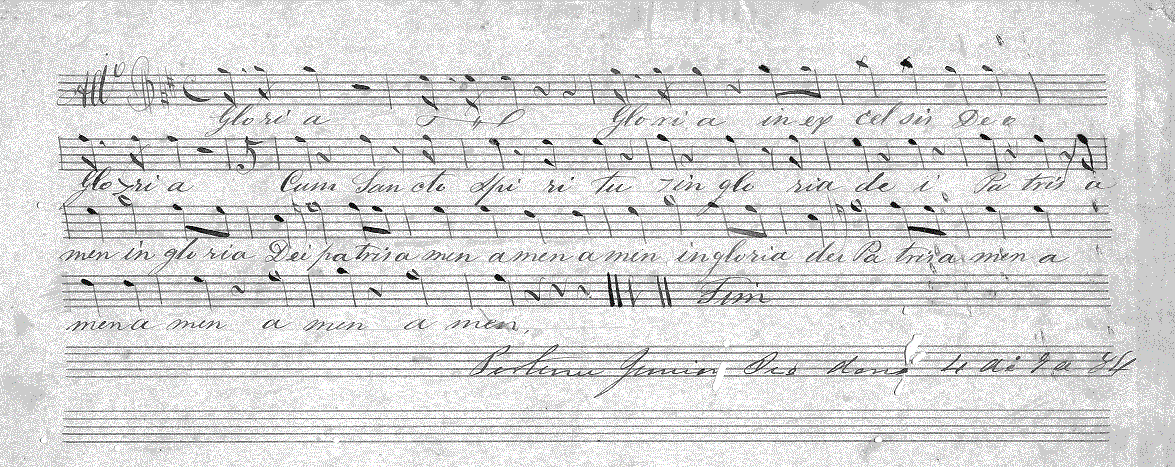 All⁰
Glo ri a Glo ri a in ex cel sis De o
5
Glo ri a Cum San cto Spi ri tu in glo ria de i Pa tris a
men in glo ria Dei patris a men a men a men in gloria dei Pa tris a men a
men a men a men a men.
Fim
Junior 4 de